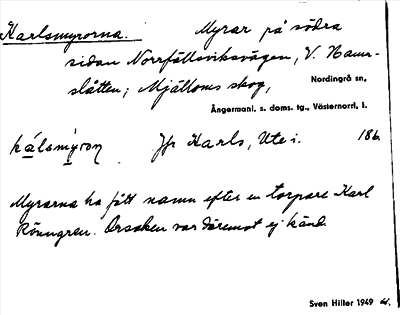 Karlsmyrorna. Myrar på södra
sidan Norrfällsviksvägen, V. Hamr-
slåtten; Mjälloms skog, Nordingrå sn,
Ångermanl. s. doms. tg., Västernorrl. l.
kálsmýroṇ Jfr Karls, Ute i. 186.
Myrarna ha fått namn efter en torpare Karl
Rönngren. Orsaken var däremot ej känd.
Sven Hiller 1949